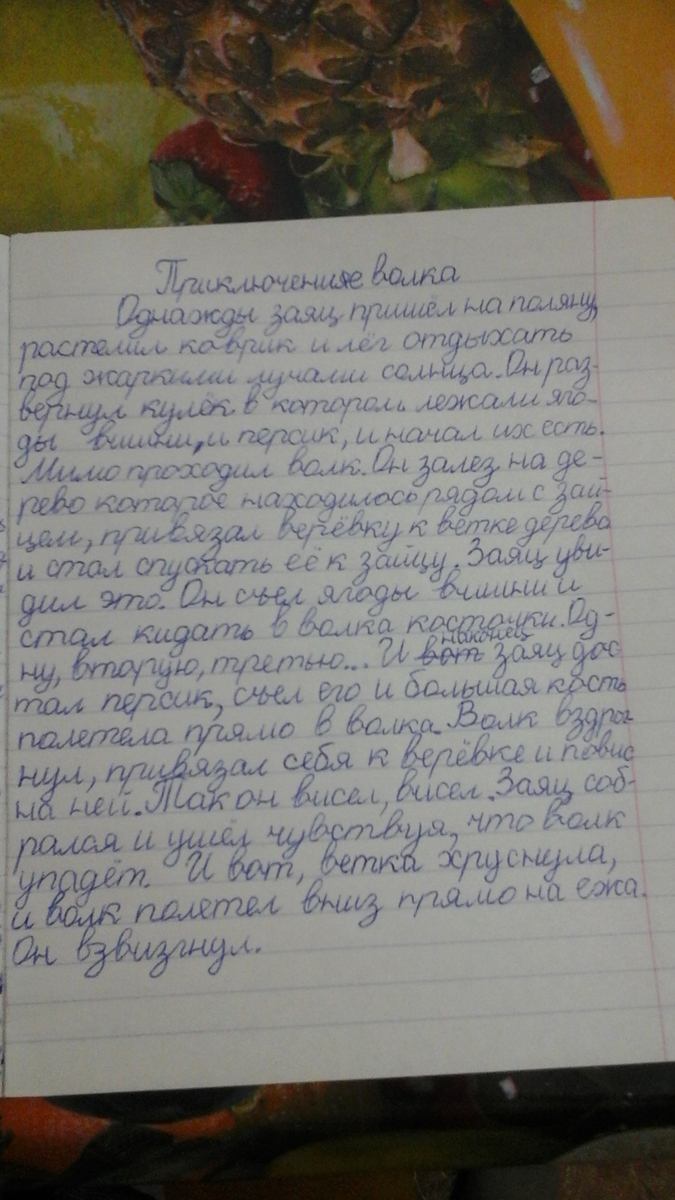 Приключение волка
Однажды заяц пришёл на поляну,
растелил коврик и лёг отдыхать
под жаркими лучами солнца. Он раз-
вернул кулёк в котором лежали яго-
ды вишни, и персик, и начал их есть.
Мимо проходил волк. Он залез на де-
рево которое находилось рядом с зай-
цем, привязал верёвку к ветке дерева
и стал спускать её к зайцу. Заяц уви-
дил это. Он съел ягоды вишни и
стал кидать в волка косточки. Од-
ну, вторую, третью... И вот наконец заяц дос
тал персик, съел его и большая кость
полетела прямо в волка. Волк вздрог
нул, привязал себя к верёвке и повис
на ней. Так он висел, висел. Заяц соб-
рался и ушёл чувствуя, что волк
упадёт. И вот, ветка хруснула,
и волк полетел вниз прямо на ежа.
Он взвизгнул.